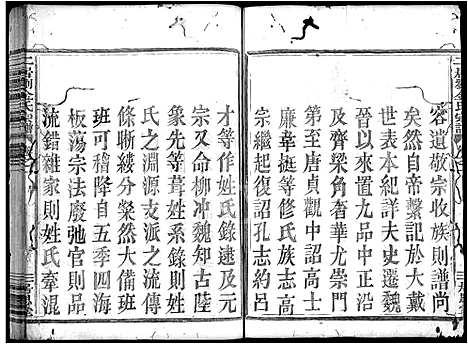 容遺敬宗收族則譜尚
矣然自帝繫記於大戴
世表本紀詳夫史遷魏
晉以來置九品中正沿
及齊梁角奢華尤崇門
第至唐貞觀中詔高士
廉挺等修氏族志高
宗繼興復詔孔志約呂
才等作姓氏錄逮及元
宗又命柳冲魏知古陸
象先等撰姓系錄則姓
氏之所支派之流傳
條晣縷分粲然大備班
班可稽降自五季四海
板蕩宗法廢弛官則品
流錯雜家則姓氏牽混